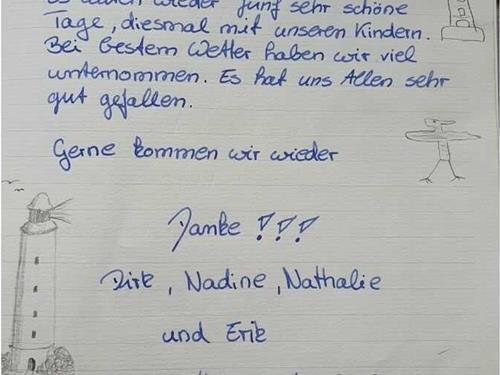 Es waren wieder fünf sehr schöne
Tage, diesmal mit unseren Kindern.
Bei bestem Wetter haben wir viel
unternommen. Es hat uns Allen sehr
gut gefallen.
Gerne kommen wir wieder
Danke !!!
Dirk, Nadine, Nathalie
und Erik